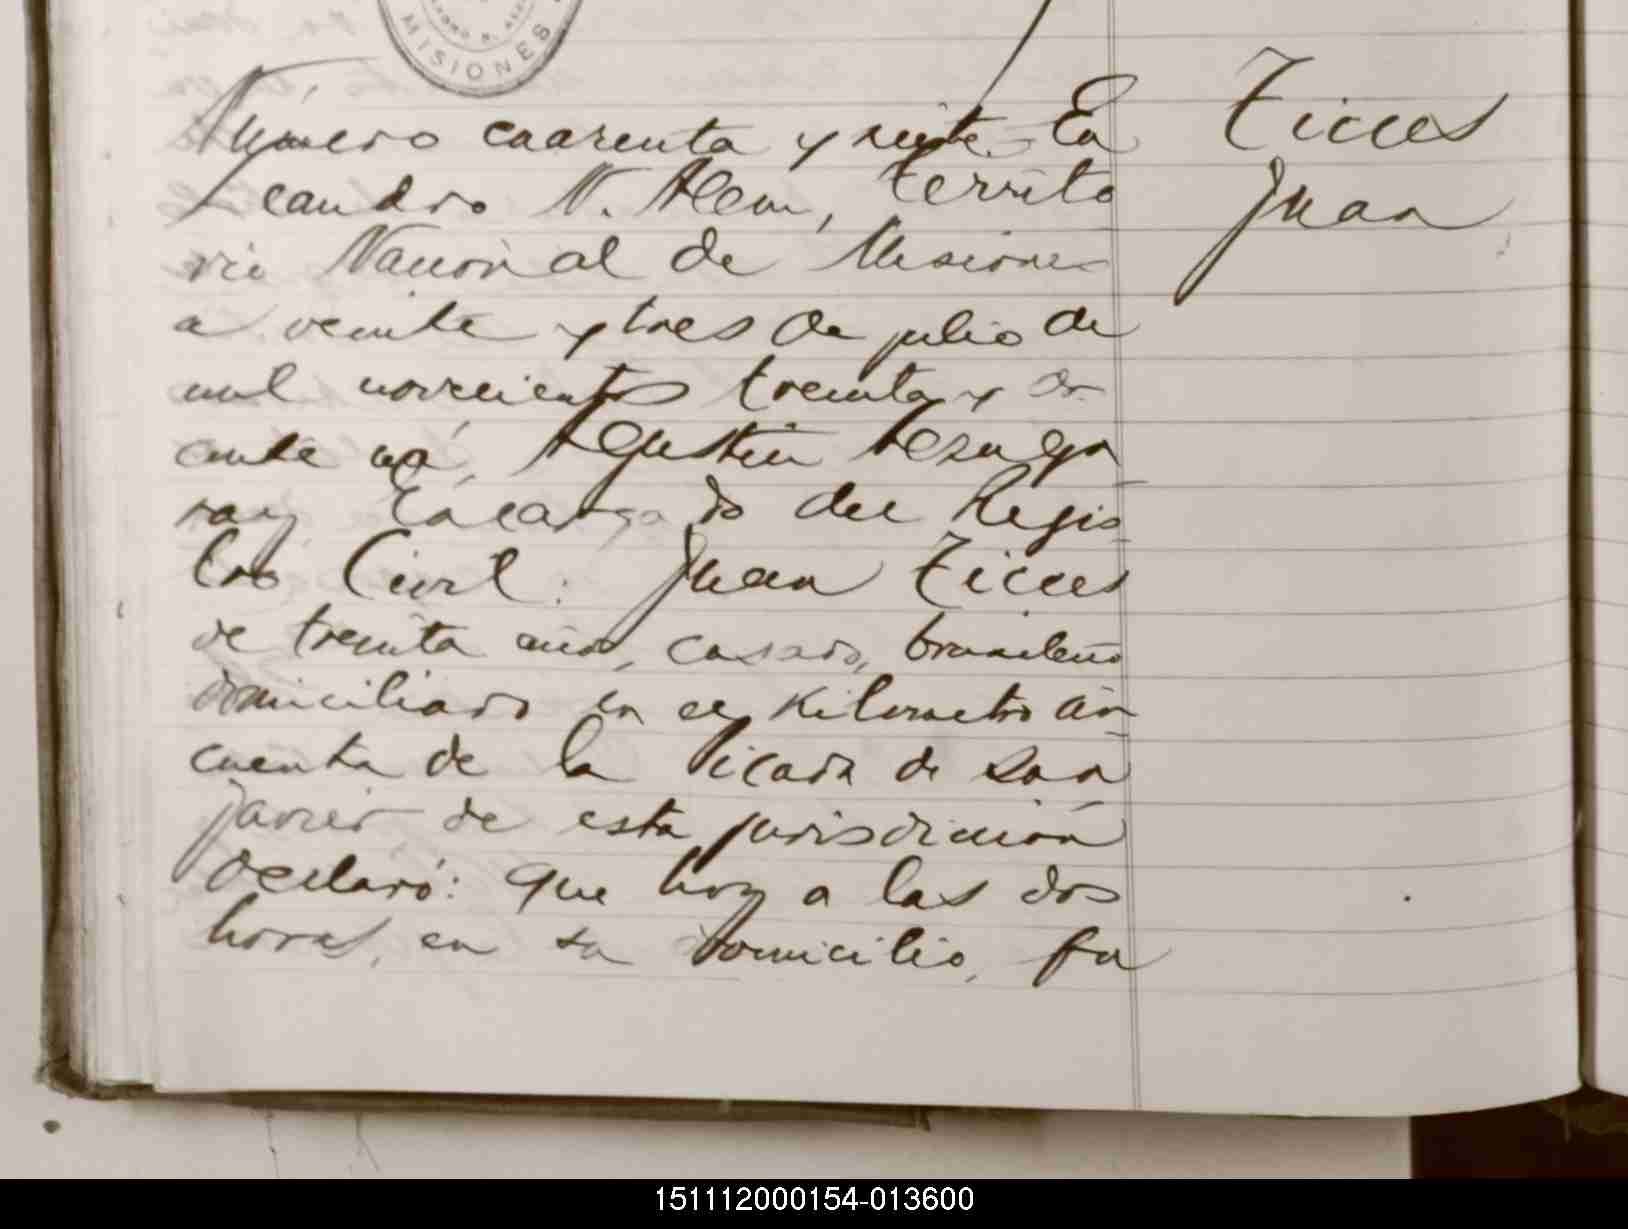 MISIONES
Número cuarenta y siete. En
Leandro N. Alem, Territo
rio Nacional de Misiones
a veinte y tres de julio de
mil novecientos treinta y
ante mí, Agustín
Encargado del Regis
tro Civil: Juan
de treinta años, casado, brasileño
domiciliado en el Kilometro cin
cuenta de la Picada de San
Javier de esta jurisdicción
declaró: Que hoy a las dos
horas, en su domicilio, fa
Juan
151112000154-013600